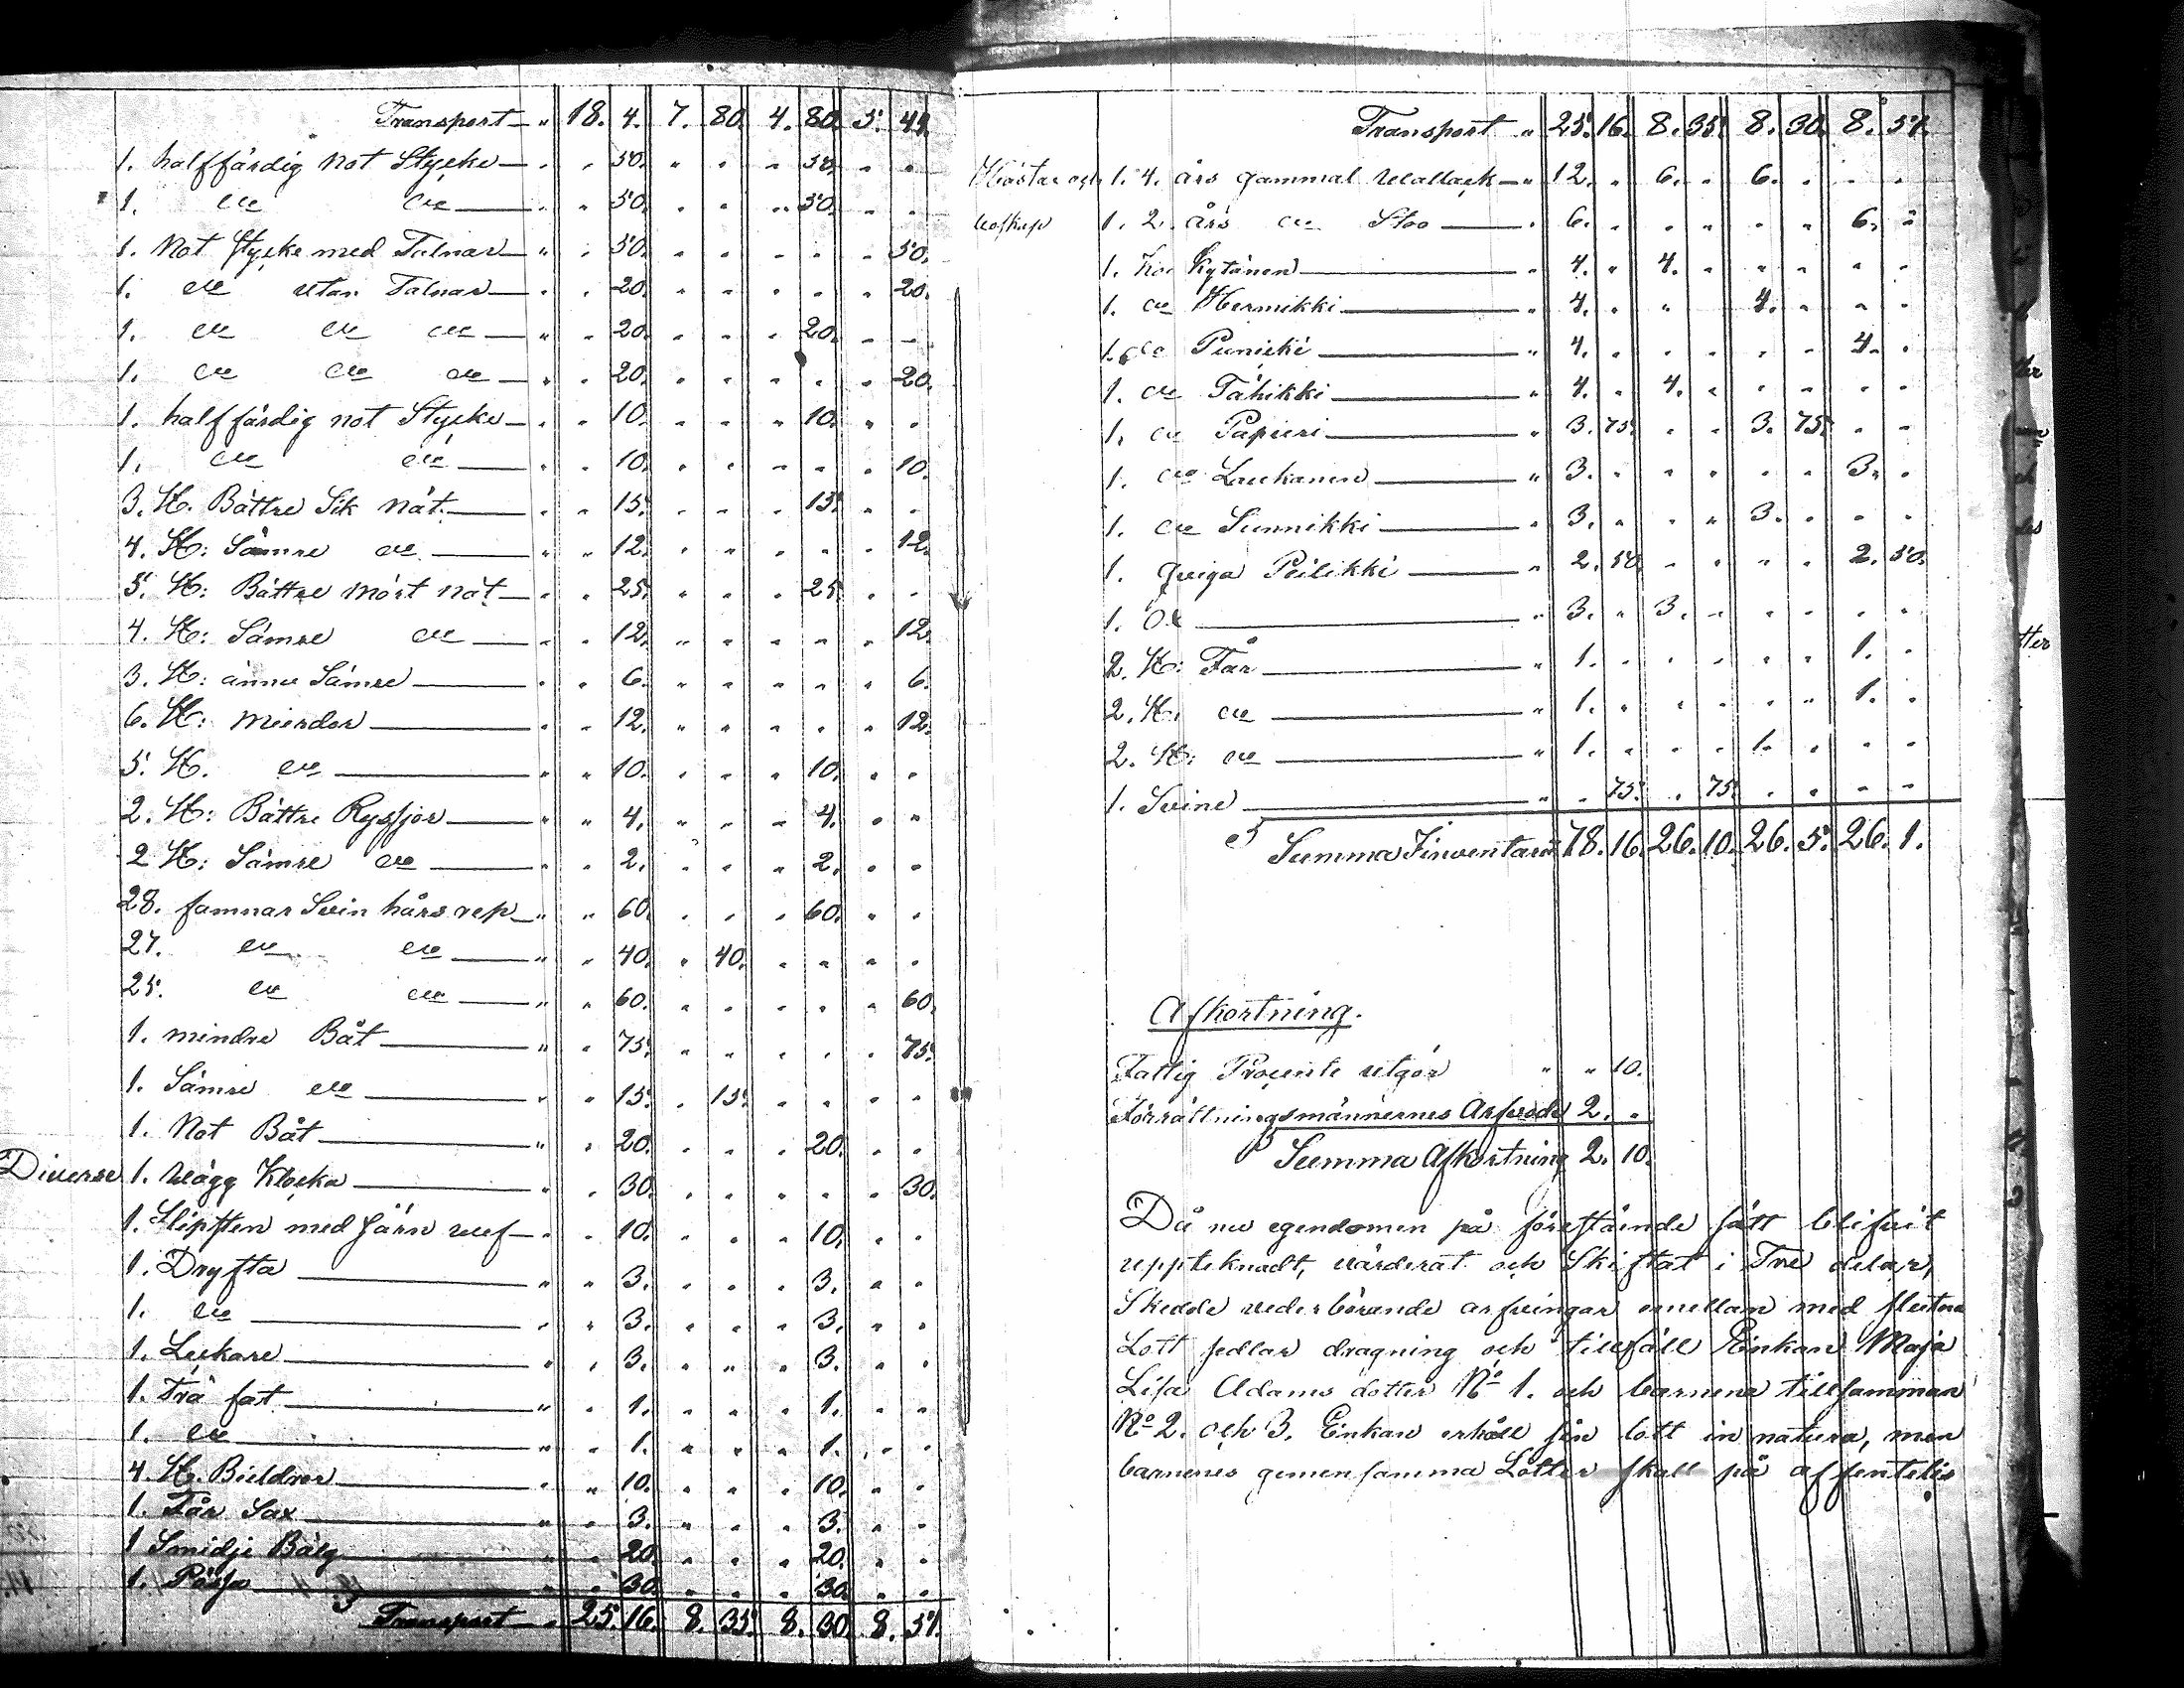 Transport " 18. 4. 7. 80. 4. 80. 5. 44.
1. halffärdig not Stycke " " 50. " " " 50. " "
1. do do " " 50. " " " 50. " "
1. Not Stycke med Talnar " " 50. " " " " " 50.
1. do utan Talnar " " 20. " " " " " 20.
1. do do do " " 20. " " " 20. " "
1. do do do " " 20. " " " " " 20.
1. halffärdig not Stycke " " 10. " " " 10. " "
1. do do " " 10. " " " " " 10.
3. St. Bättre Sik nät " " 15. " " " 15. " "
4. St: Sämre do " " 12. " " " " " 12.
5. St: Bättre Mört nät " " 25. " " " 25. " "
4. St: Sämre do " " 12. " " " " " 12.
3. St: ännu Sämre " " 6. " " " " " 6.
6. St: mierdor " " 12. " " " " " 12.
5. St. do " " 10. " " " 10. " "
2. St: Bättre Ryssjor " " 4. " " " 4. " "
2 St: Sämre do " " 2. " " " 2. " "
28. famnar Svin hårs rep " " 60. " " " 60. " "
27. do do " " 40. " 40. " " " "
25. do do " " 60. " " " " " 60.
1. mindre Båt " " 75. " " " " " 75.
1. Sämre do " " 15. " 15. " " " "
1. Not Båt " " 20. " " " 20. " "
Diverse 1. Wägg Klocka " " 30. " " " " " 30.
1. Slipsten med Järn wef " " 10. " " " 10. " "
1. Dryfta " " 3. " " " 3. " "
1. do " " 3. " " " 3. " "
1. Luckare " " 3. " " " 3. " "
1. Trä fat " " 1. " " " 1. " "
1. do " " 1. " " " 1. " "
4. St. Bieldror " " 10. " " " 10. " "
1. Får Sax " " 3. " " " 3. " "
1 Smidje Bälg " " 20. " " " 20. " "
1. Påssa " " 30. " " " 30. " "
Transport " 25. 16. 8. 35. 8. 30. 8. 51.
Transport " 25. 16. 8. 35. 8. 30. 8. 51.
Hästar och 1. 4. års gammal Wallack " 12. " 6. " 6. " " "
boskap 1. 2. års do Sto " 6. " " " " " 6. "
1. Ko Kytänen " 4. " 4. " " " " "
1. do Hermikki " 4. " " " 4. " " "
1. do Punicki " 4. " " " " " 4. "
1. do Tähikki " 4. " 4. " " " " "
1. do Papuri " 3. 75. " " 3. 75. " "
1. do Laukanen " 3. " " " " " 3. "
1. do Sunnikki " 3. " " " 3. " " "
1. qviga Pilikki " 2. 50. " " " " 2. 50.
1. Ox " 3. " 3. " " " " "
2. St: Får " 1. " " " " " 1. "
2. St. do " 1. " " " " " 1. "
2. St: do " 1. " " " 1. " " "
1. Svine " " 75. " 75. " " " "
Summa Inventarii 78. 16. 26. 10. 26. 5. 26. 1.
Afkortning.
Fattig Procente utgör " " 10.
Förrättningsmännernes Arfwode 2. "
Summa Afkortning 2. 10.
Då nu egendomen på förestående sätt blifvit
uppteknadt, värderat och Skiftat i Tre delar,
Skedde vederbörande arfvingar emellan med slutna
Lott sedlar dragning och tillföll Enkan Maja
Lisa Adams dotter No 1. och barnena tillsamman
No 2. och 3. Enkan erhöll sin lott in natura, men
barnenes gemensamma Lotter skall på offentelig